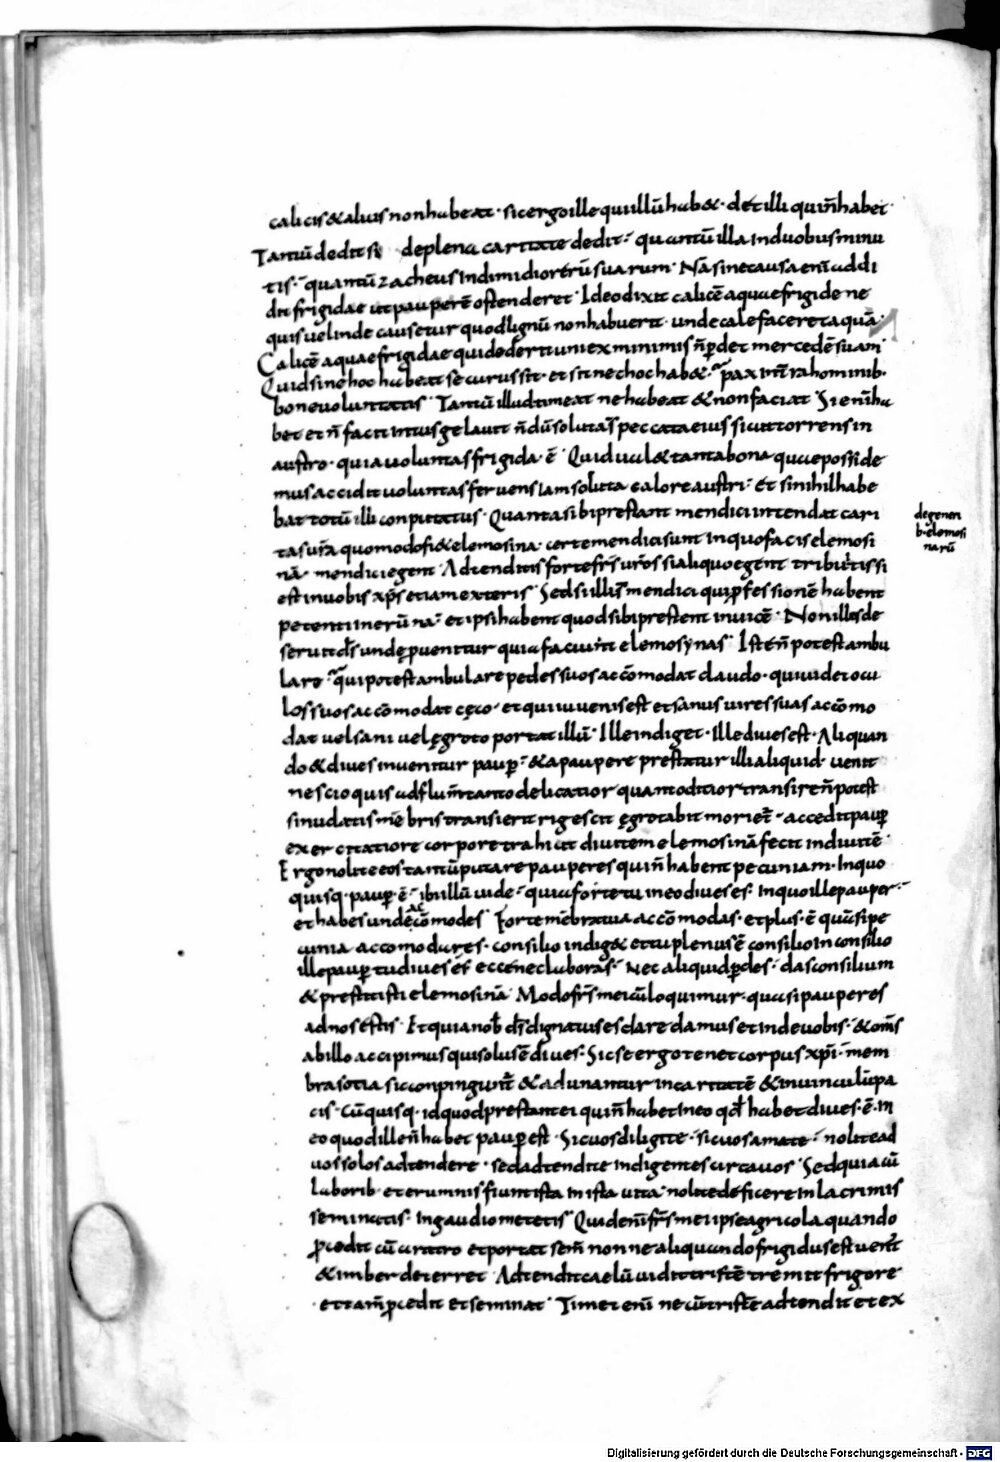 calicis & aluis non habeat · sic ergo ille qui illũ hab& · det illi qui ñ habet
Tantũ dedit si de plena caritate dedit · quantũ illa In duobus minu
tis · quantũ zacheus In dimidio rerũ suarum · Nã sine causa enĩ addi
dit frigidae ut pauperẽ ostenderet · Ideo dixit calicẽ aquae frigide ne
quis uel inde causetur quod lignũ non habuerit · unde calefaceret aquã ·
Calicẽ aquae frigidae qui dederit uni ex minimis ñ pdet mercedẽ suam
Quid si nec hoc habeat securus sit · et si nec hoc hab& · pax in trã hominib·
bone uoluntatis · Tantũ illud timeat ne habeat & non faciat · Si enĩ ha
bet et ñ facit intus gelauit ñ dũ soluta s̃ peccata eius sicut torrens in
austro · quia uoluntas frigida · ẽ · Quid ual& tanta bona quae posside
mus accidit uoluntas feruens Iam soluta calore austri · Et si nihil habe
bat totũ illi conputatus · Quanta sibi prestant mendici intendat cari
tas ur̃a quomodo fi& elemosina · certe mendici sunt In quo facis elemosi
nã · mendici egent · Adtenditis forte fr̃s uros si aliquo egent tribuitis si
est in uobis xp̃s etiam exteris · Sed si illi s̃ mendici qui pfessionẽ habent
petenti Inerũna · et ipsi habent quod sibi prestent inuicẽ · Non illos de
seruit d̃s unde puenitur quia faciunt elemosynas · Iste ñ potest ambu
lare · qui potest ambulare pedes suos accõmodat claudo · qui uidet ocu
los suos accõmodat cęco · et qui iuuenis est et sanus uires suas accõmo
dat uel sani uel ęgroto portat illũ · Ille indiget · Ille diues est · Aliquan
do & diues inuenitur paup · & a paupere prestatur illi aliquid · uenit
nescio quis ad flum̃ tanto delicatior quanto ditior transire ñ potest
si nudatis mẽbris transierit rigescit ęgrotabit moriet̃ · accedit paup
exercitatiore corpore trahicit diuitem elemosinã fecit in diuitẽ
Ergo nolite eos tantũ putare pauperes qui ñ habent pecuniam · In quo
quisq· paup · ẽ · ibi illũ uide · quia forte tu in eo diues es · In quo ille pauper ·
et habes unde accõmodes · Forte mẽbra tua accõmodas · et plus · ẽ quã si pe
cunia accomodares · consilio indig& et tu plenus ẽ consilio In consilio
ille paup tu diues es · ecce nec laboras · Nec aliquid pdes · das consilium
& prestitisti elemosinã · Modo fr̃s mei cũ loquimur · quasi pauperes
ad nos estis · Et quia nob d̃s dignatus es dare damus et inde uobis · & om̃s
ab illo accipimus qui solus ẽ diues · Sic se ergo tenet corpus xp̃i · mem
bra sotia sic conpingunt̃ & adunantur In caritatẽ & in uinculũ pa
cis · Cũ quisq· id quod prestant ei qui ñ habet In eo qd habet diues · ẽ · In
eo quod ille ñ habet paup est · Sic uos diligite · sic uos amate · nolite ad
uos solos adtendere · sed adtendite indigentes circa uos · Sed quia cũ
laborib · et erumnis fiunt ista In ista uita · nolite deficere In lacrimis
seminatis · In gaudio metetis · Quid enĩ fr̃s mei ipse agricola quando
pcedit cũ aratro et portat sem̃ nonne aliquando frigidus est uent
& imber deterret · Adtendit caelũ uidit tristẽ tremit frigore
et tam̃ pcedit et seminat · Timet enĩ ne cũ tristẽ adtendit et ex
de gener
b· elemosi
narũ
Digitalisierung gefördert durch die Deutsche Forschungsgemeinschaft - DFG